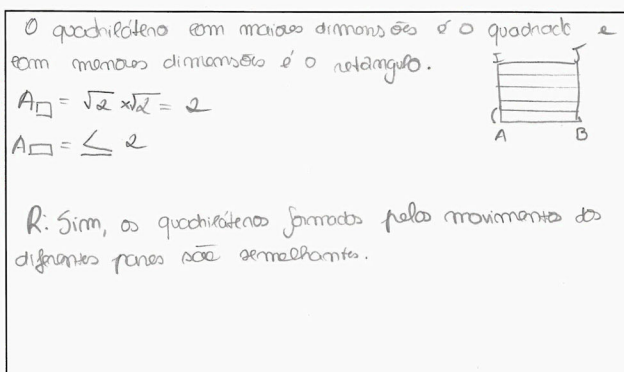 O quadrilátero com maiores dimensões é o quadrado e
com menores dimensões é o retângulo.
I J
A□ = √2 × √2 = 2
A▭ = ≤ 2
A B
R: Sim, os quadriláteros formados pelos movimentos dos
diferentes pares são semelhantes.